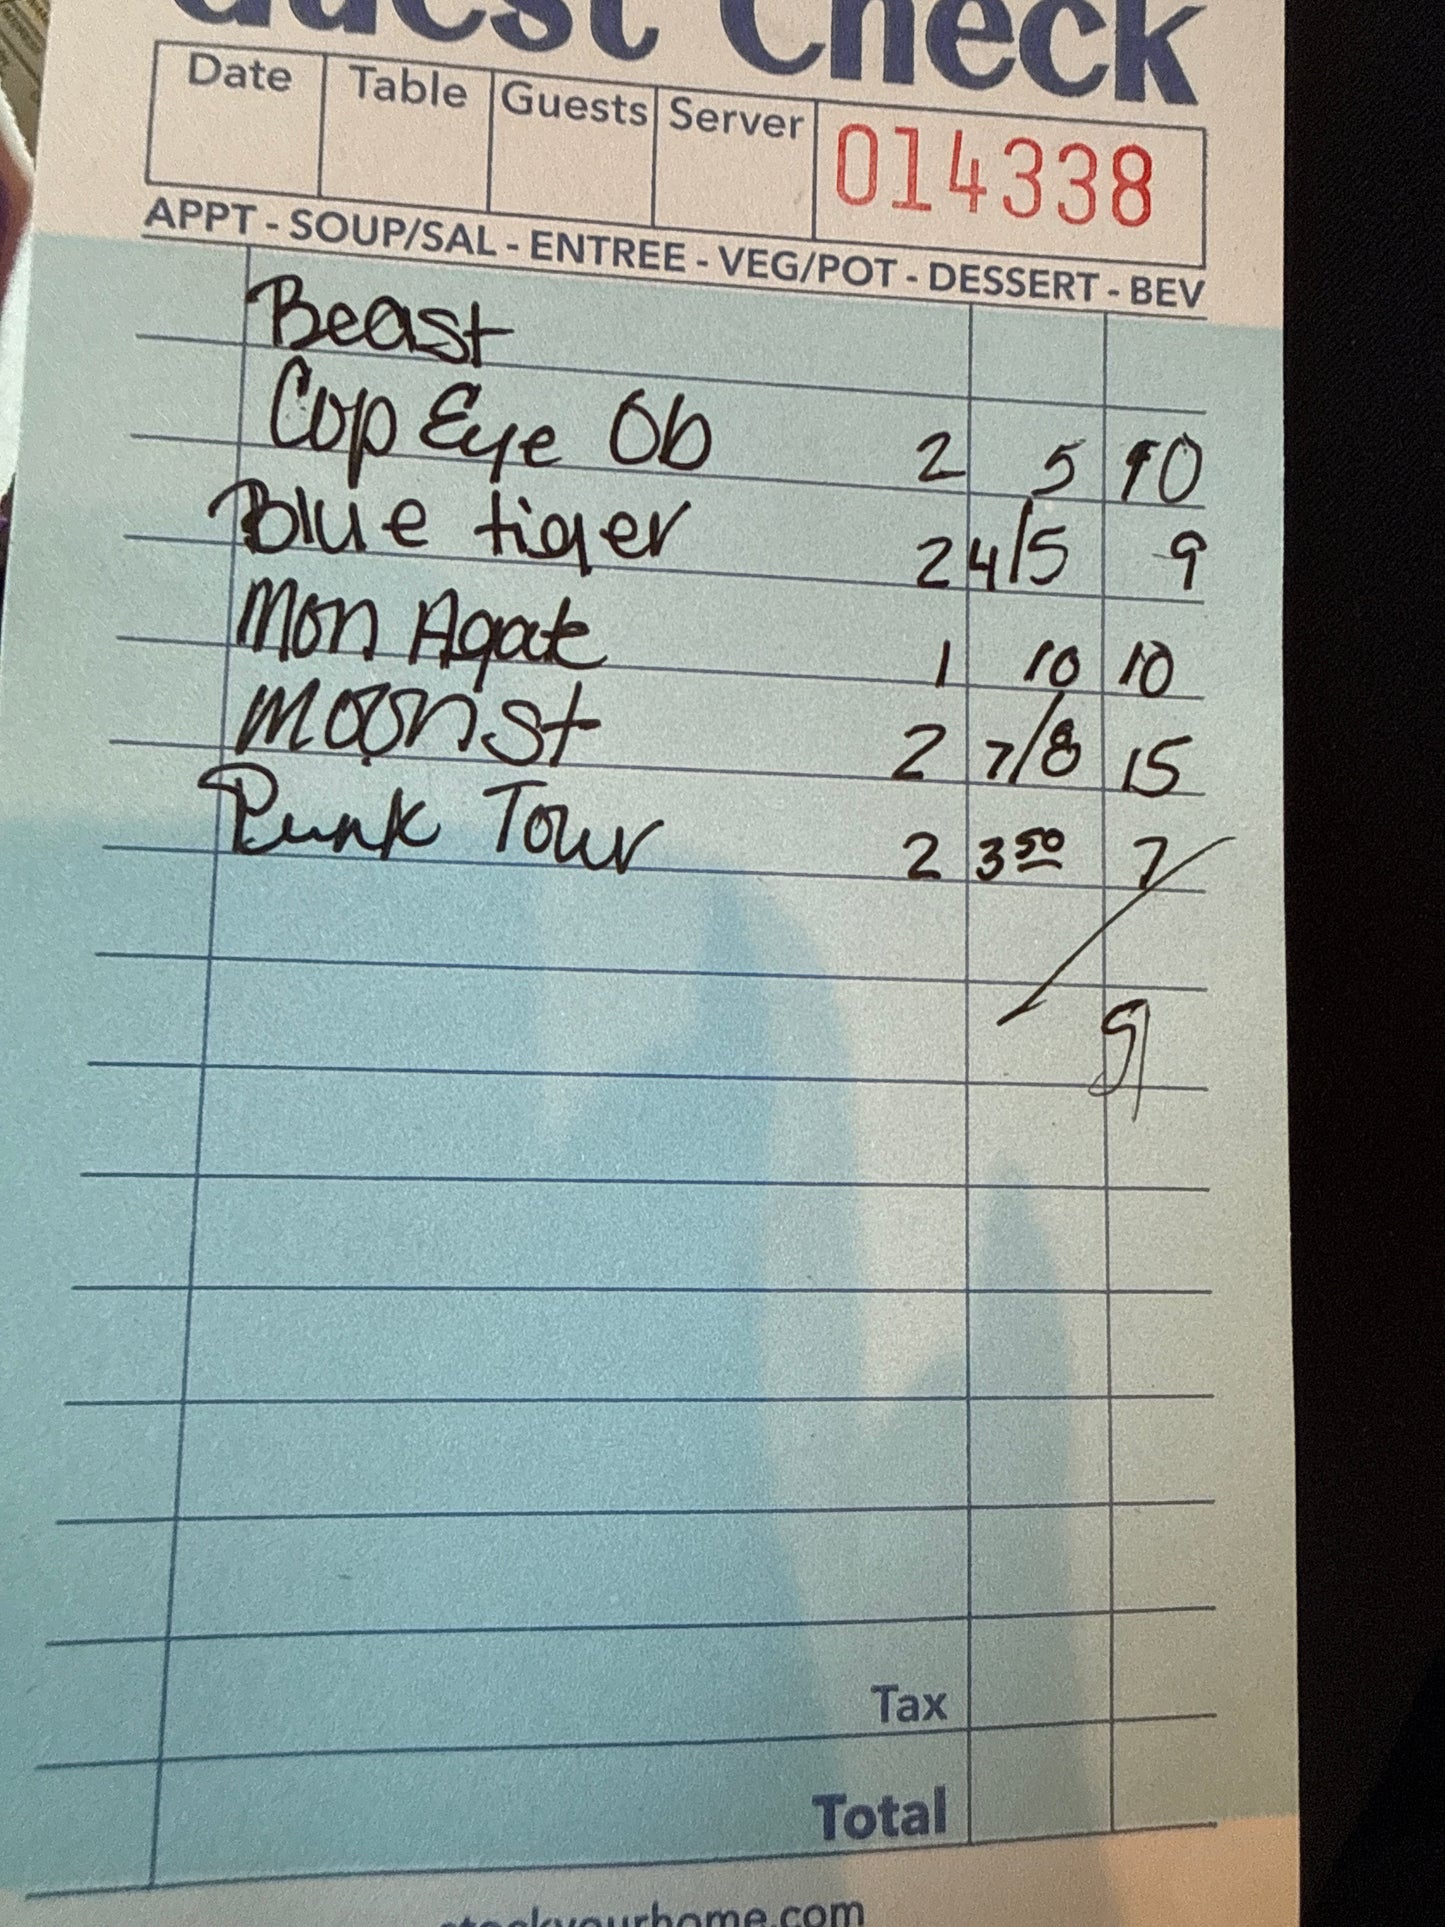 Guest Check
Date Table Guests Server 014338
APPT - SOUP/SAL - ENTREE - VEG/POT - DESSERT - BEV
Beast
Cop Eye Ob 2 5 10
Blue tiger 2 4/5 9
Mon Agate 1 10 10
Moonst 2 7/8 15
Punk Tour 2 3 50 7
51
Tax
Total
stockyourhome.com